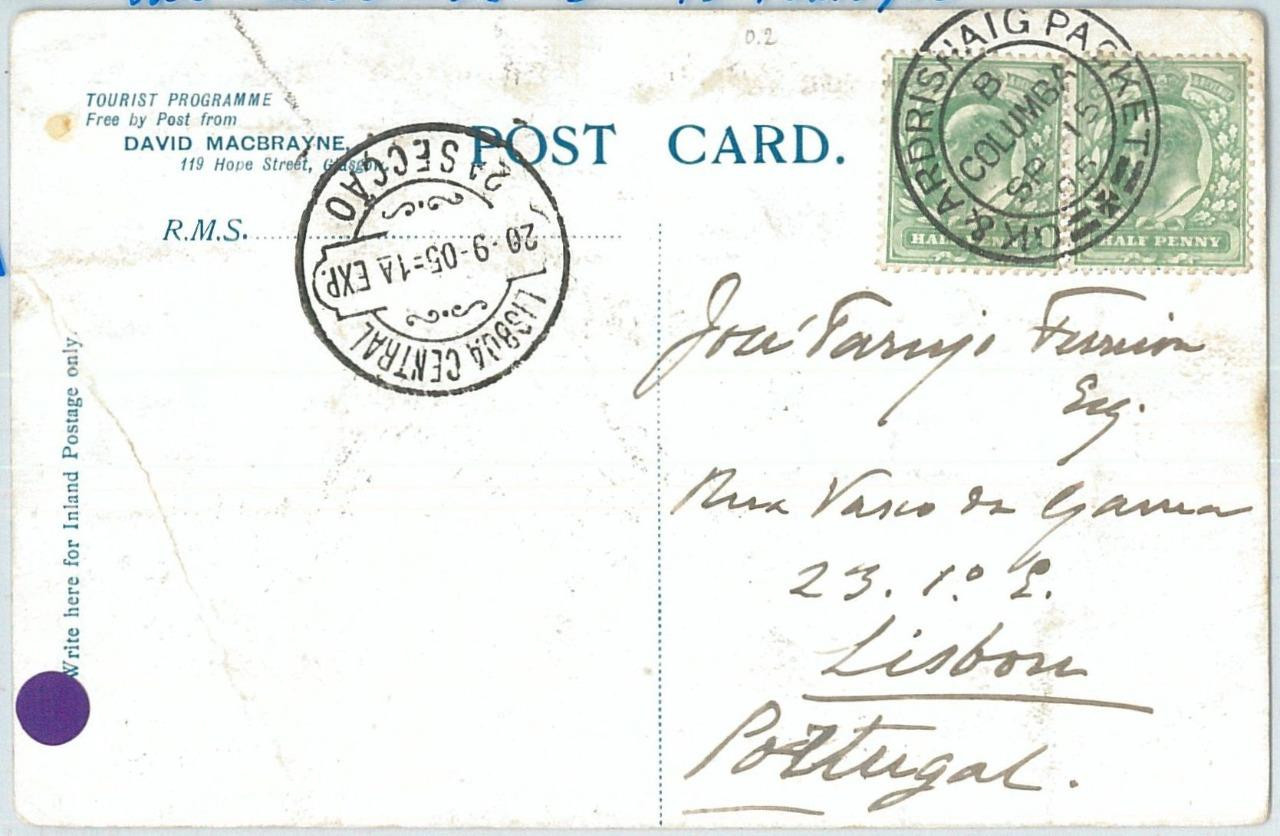 0.2
TOURIST PROGRAMME
Free by Post from
DAVID MACBRAYNE,
119 Hope Street, Glasgow.
POST CARD.
R.M.S.
Write here for Inland Postage only.
2ª SECÇÃO
20-9-05=1A EXP.
LISBOA CENTRAL
GK & ARDRISHAIG PACKET
B
COLUMBA
SP 15
05
HALF PENNY
HALF PENNY
José
Esq.
Rua Vasco da Gama
23. 1º E.
Lisbon
Portugal.